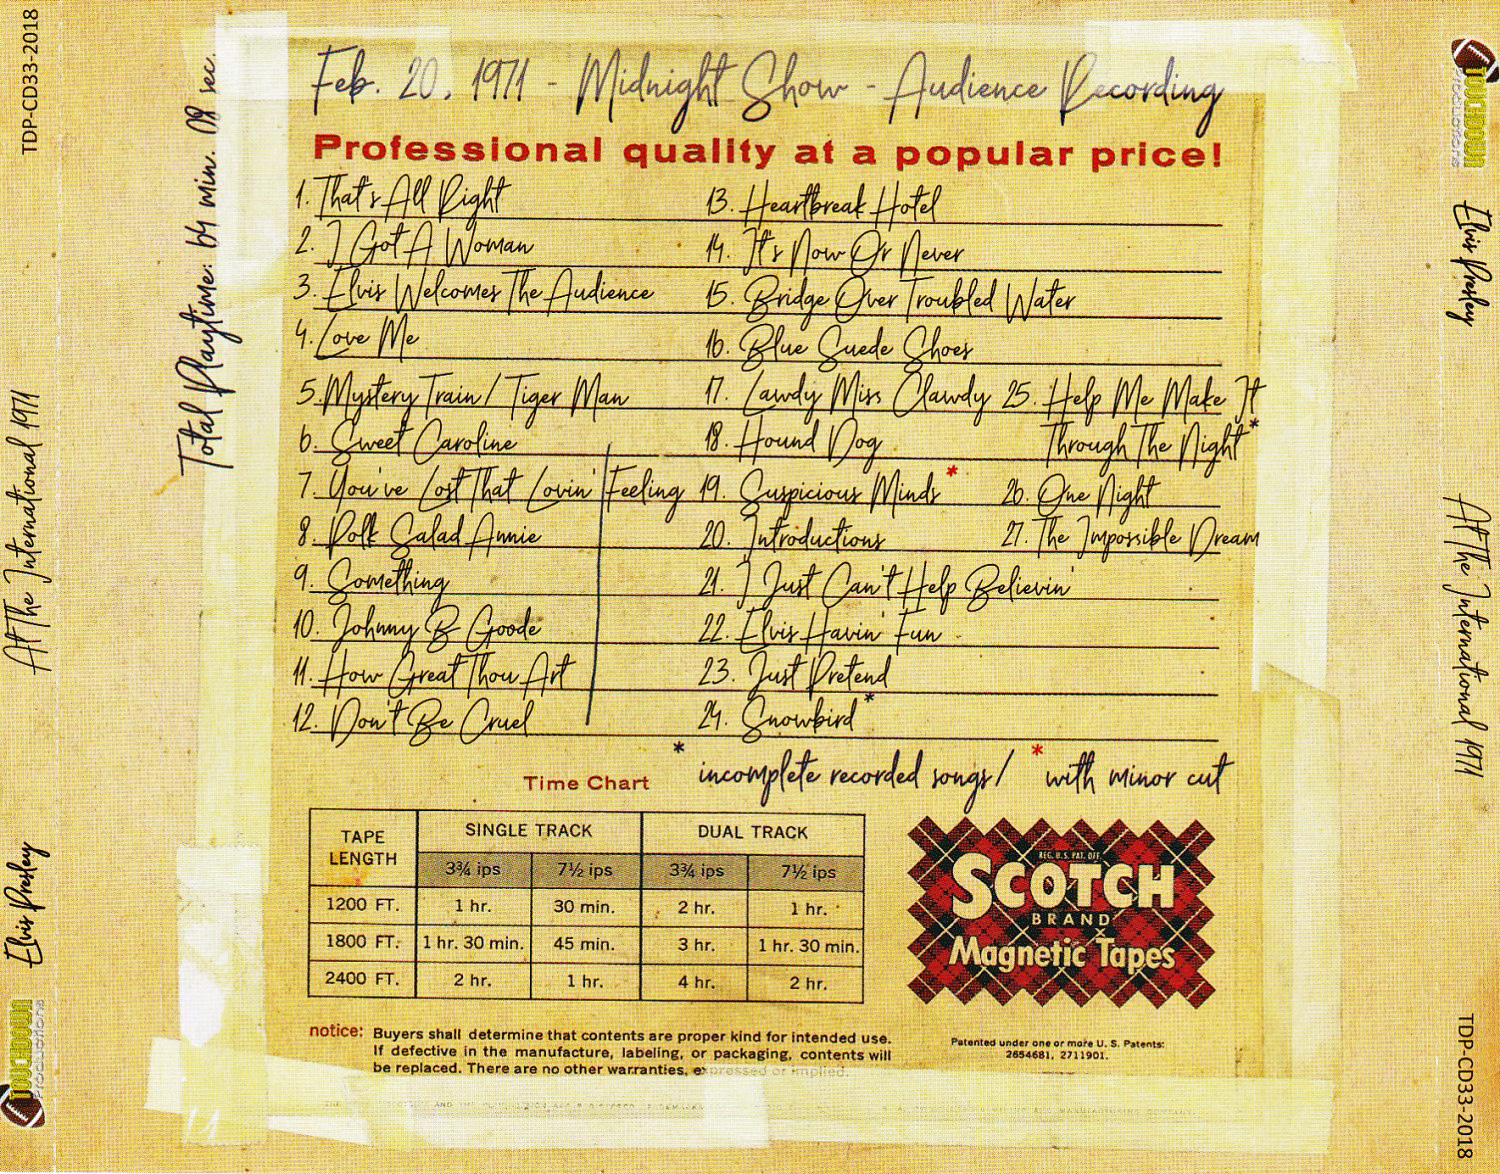 TDP-CD33-2018
At The International 1971
Elvis Presley
TOUCHDOWN
Productions
Total Playtime: 64 min. 08 sec.
Feb. 20, 1971 - Midnight Show - Audience Recording
Professional quality at a popular price!
1. That's All Right
2. I Got A Woman
3. Elvis Welcomes The Audience
4. Love Me
5. Mystery Train/ Tiger Man
6. Sweet Caroline
7. You've Lost That Lovin' Feeling
8. Polk Salad Annie
9. Something
10. Johnny B Goode
11. How Great Thou Art
12. Don't Be Cruel
13. Heartbreak Hotel
14. It's Now Or Never
15. Bridge Over Troubled Water
16. Blue Suede Shoes
17. Lawdy Miss Clawdy
18. Hound Dog
19. Suspicious Minds *
20. Introductions
21. I Just Can't Help Believin'
22. Elvis Havin' Fun
23. Just Pretend
24. Snowbird *
25. Help Me Make It
Through The Night *
26. One Night
27. The Impossible Dream
* incomplete recorded songs/ * with minor cut
Time Chart
TAPE LENGTH SINGLE TRACK DUAL TRACK
3¾ ips 7½ ips 3¾ ips 7½ ips
1200 FT. 1 hr. 30 min. 2 hr. 1 hr.
1800 FT. 1 hr. 30 min. 45 min. 3 hr. 1 hr. 30 min.
2400 FT. 2 hr. 1 hr. 4 hr. 2 hr.
REG. U.S. PAT. OFF.
SCOTCH
BRAND
Magnetic Tapes
notice: Buyers shall determine that contents are proper kind for intended use.
If defective in the manufacture, labeling, or packaging, contents will
be replaced. There are no other warranties, expressed or implied.
Patented under one or more U. S. Patents:
2654681, 2711901.
TOUCHDOWN
Productions
Elvis Presley
At The International 1971
TDP-CD33-2018